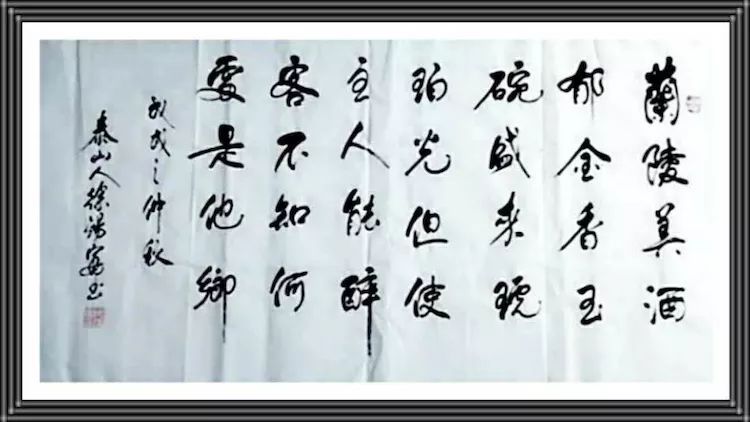 蘭陵美酒
郁金香玉
碗盛来琥
珀光但使
主人能醉
客不知何
處是他鄉
戊戌之仲秋
泰山人徐